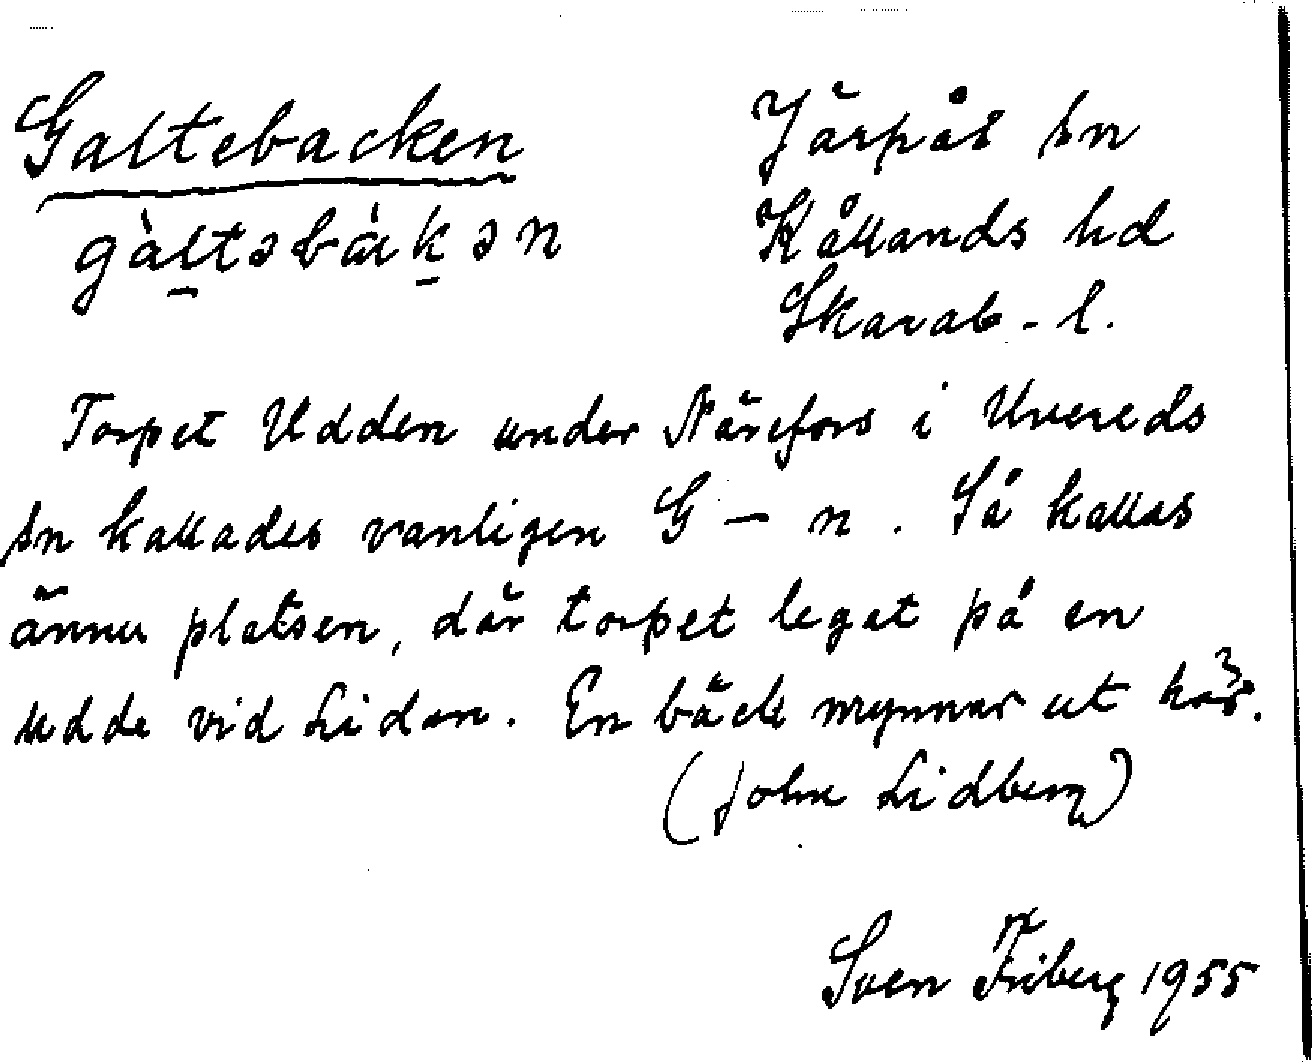 Galtebacken
gàl̠təbàk̠ən
Järpås sn
Kållands hd
Skarab-l.
Torpet Udden under Närefors i Uvereds
sn kallades vanligen G - n. Så kallas
ännu platsen, där torpet leget på en
udde vid Lidan. En bäck mynnar ut här.
(John Lidberg)
Sven Friberg 1955